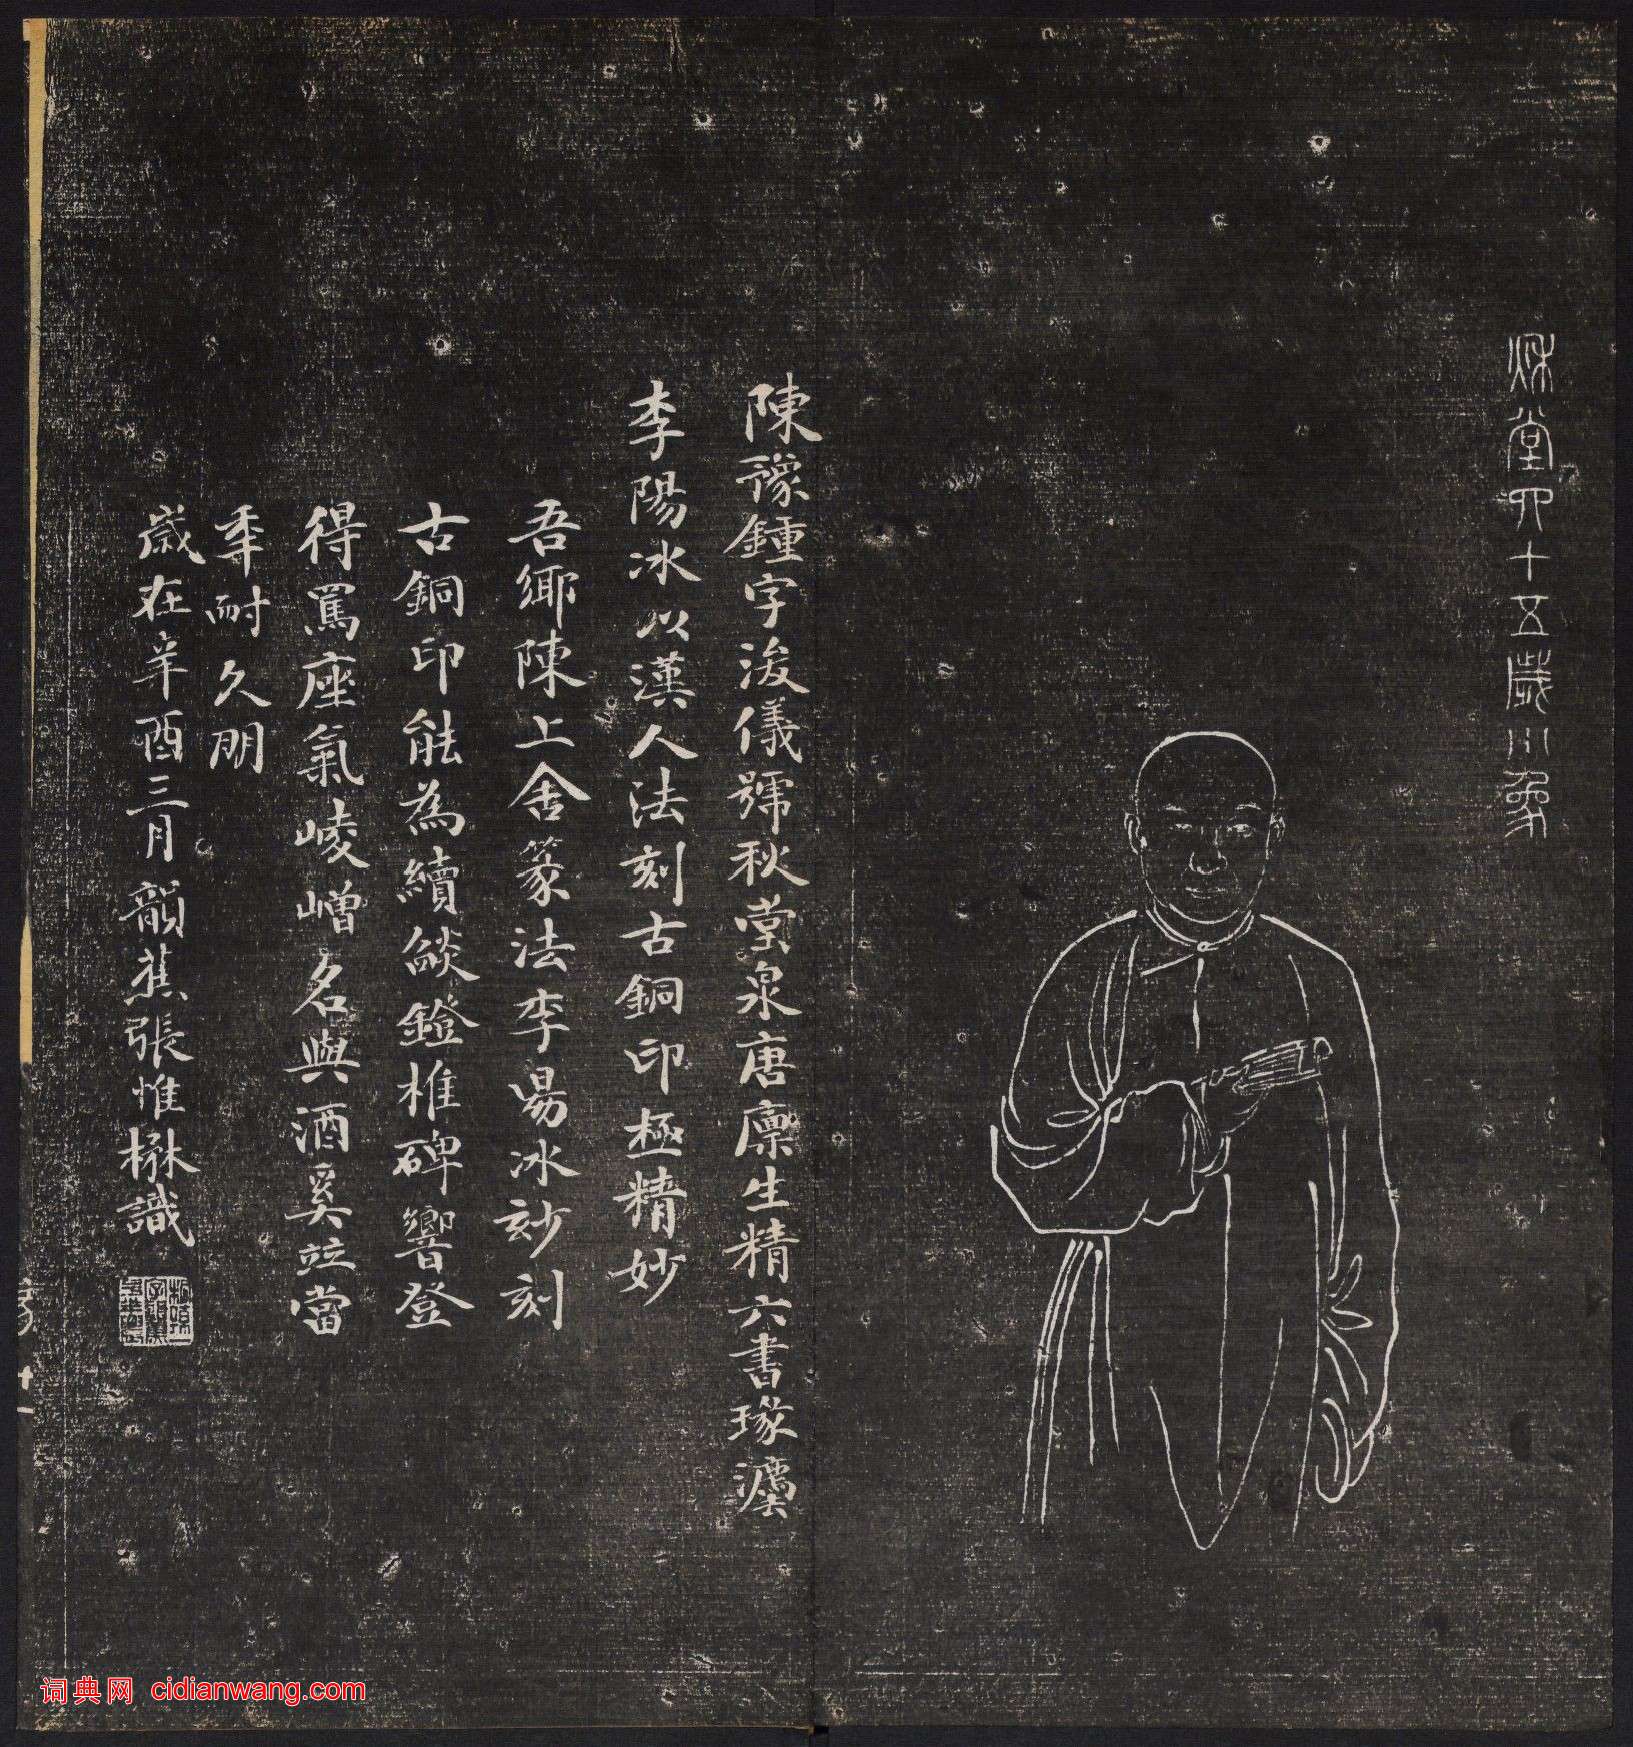 秌堂四十五歲小象
陳豫鍾字浚儀號秋堂泉唐廩生精六書瑑灋
李陽冰以漢人法刻古銅印極精妙
吾鄉陳上舍篆法李昜冰玅刻
古銅印能為續燄鐙椎碑響登
得罵座氣崚嶒名與酒奚竝當
秊耐久朋
歲在辛酉三月韻蕉張惟楙識
词典网 cidianwang.com